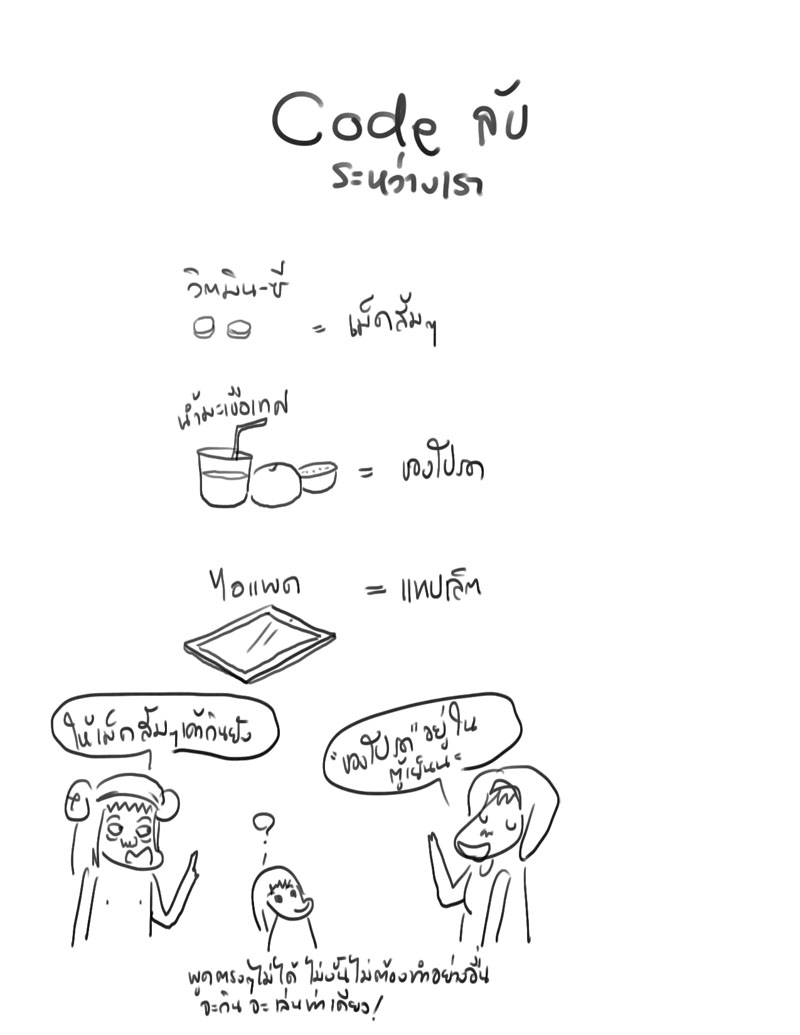 Code ลับ
ระหว่างเรา
วิตมิน-ซี
= เม็ดส้มๆ
น้ำมะเขือเทศ
= ของโปรด
ไอแพด
= แทปเล็ต
ให้เม็ดส้มๆเค้ากินยัง
"ของโปรด" อยู่ใน
ตู้เย็นน่ะ
?
พูดตรงๆไม่ได้ ไม่งั้นไม่ต้องทำอย่างอื่น
จะกิน จะเล่นท่าเดียว!